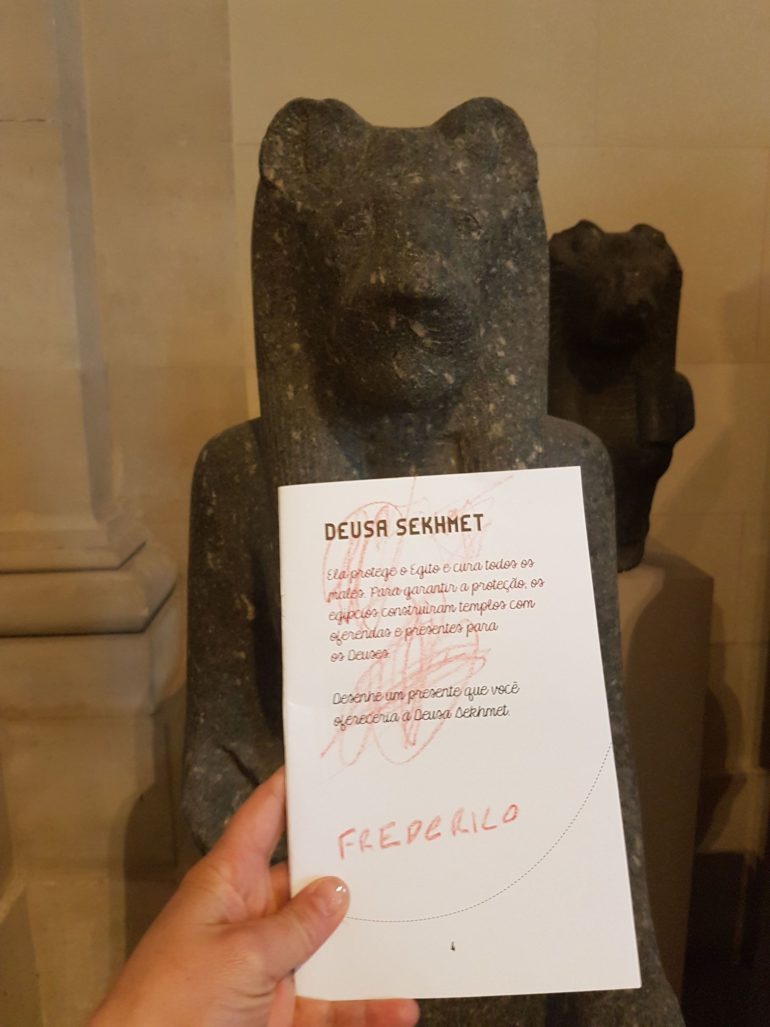 DEUSA SEKHMET
Ela protege o Egito e cura todos os
males. Para garantir a proteção, os
egípcios construíram templos com
oferendas e presentes para
os Deuses.
Desenhe um presente que você
ofereceria à Deusa Sekhmet.
FREDERICO
4